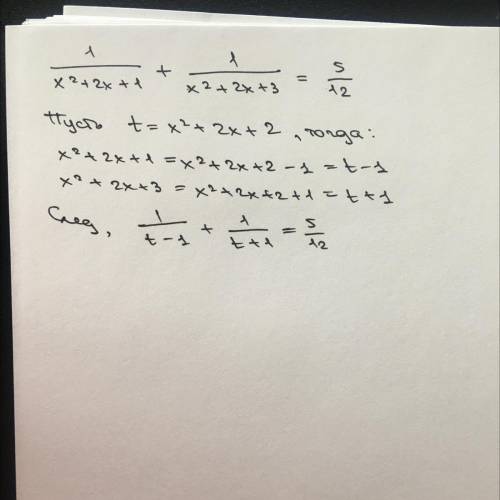 1/(x²+2x+1) + 1/(x²+2x+3) = 5/12
Пусть t = x²+2x+2, тогда:
x²+2x+1 = x²+2x+2-1 = t-1
x²+2x+3 = x²+2x+2+1 = t+1
След, 1/(t-1) + 1/(t+1) = 5/12